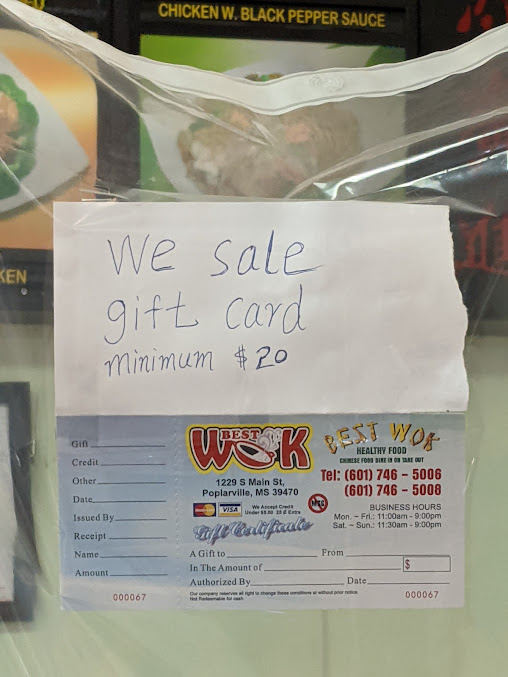 CHICKEN W. BLACK PEPPER SAUCE
KEN
We sale
gift card
minimum $20
Gift
Credit
Other
Date
Issued By
Receipt
Name
Amount
000067
BEST
WOK
1229 S Main St,
Poplarville, MS 39470
MasterCard VISA We Accept Credit
Under $5.00 25 ¢ Extra
Gift Certificate
BEST WOK
HEALTHY FOOD
CHINESE FOOD DINE IN OR TAKE OUT
Tel: (601) 746 - 5006
(601) 746 - 5008
BUSINESS HOURS
Mon. ~ Fri.: 11:00am - 9:00pm
Sat. ~ Sun.: 11:30am - 9:00pm
A Gift to From
In The Amount of $
Authorized By Date
Our company reserves all right to change these conditions at without prior notice.
Not Redeemable for cash
000067